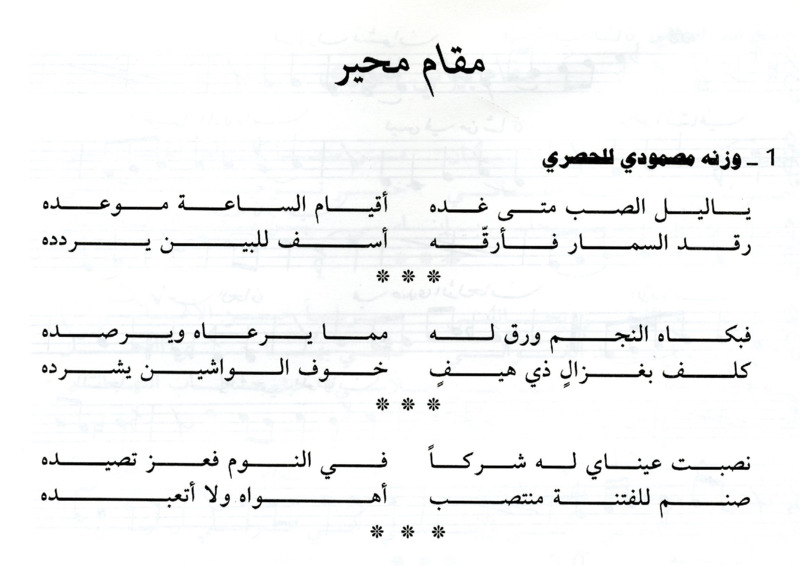 مقام محير
1 ـ وزنه مصمودي للحصري
ياليل الصب متى غده أقيام الساعة موعده
رقد السمار فأرقّه أسف للبين يردده
* * *
فبكاه النجم ورق له مما يرعاه ويرصده
كلف بغزالٍ ذي هيفٍ خوف الواشين يشرده
* * *
نصبت عيناي له شركاً في النوم فعز تصيده
صنم للفتنة منتصب أهواه ولا أتعبده
* * *